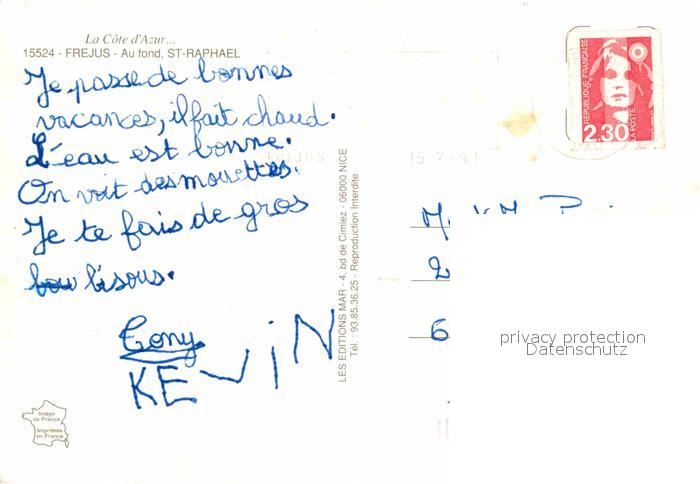 La Côte d'Azur...
15524 - FREJUS - Au fond, ST-RAPHAEL
Je passe de bonnes
vacances, il fait chaud.
L'eau est bonne.
On voit des mouettes.
Je te fais de gros
bisous.
Tony
KEVIN
LES EDITIONS MAR - 4, bd de Cimiez - 06000 NICE
Tél. : 93.85.36.25 - Reproduction Interdite
Image
de France
Imprimée
en France
REPUBLIQUE FRANÇAISE
2.30
LA POSTE
FREJUS 15-7-91
M.
2
6
privacy protection
Datenschutz